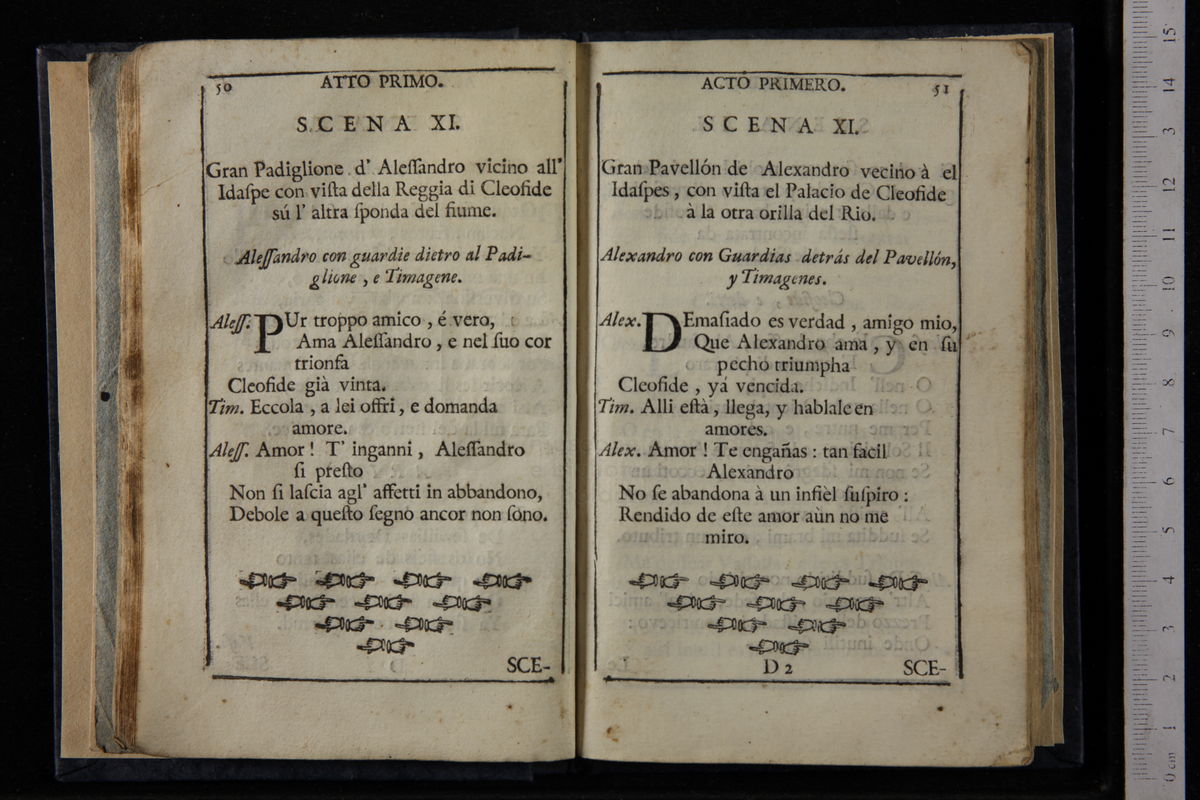 50
ATTO PRIMO.
SCENA XI.
Gran Padiglione d' Aleſſandro vicino all'
Idaſpe con viſta della Reggia di Cleofide
sú l' altra ſponda del fiume.
Aleſſandro con guardie dietro al Padi-
glione, e Timagene.
Aleſſ. PUr troppo amico, é vero,
Ama Aleſſandro, e nel ſuo cor
trionfa
Cleofide già vinta.
Tim. Eccola, a lei offri, e domanda
amore.
Aleſſ. Amor! T' inganni, Aleſſandro
ſi preſto
Non ſi laſcia agl' affetti in abbandono,
Debole a queſto ſegno ancor non ſono.
SCE-
ACTO PRIMERO.
51
SCENA XI.
Gran Pavellón de Alexandro vecino à el
Idaſpes, con viſta el Palacio de Cleofide
à la otra orilla del Rio.
Alexandro con Guardias detrás del Pavellón,
y Timagenes.
Alex. DEmaſiado es verdad, amigo mio,
Que Alexandro ama, y en ſu
pecho triumpha
Cleofide, yá vencida.
Tim. Alli eſtà, llega, y hablale en
amores.
Alex. Amor! Te engañas: tan facil
Alexandro
No ſe abandona à un infièl ſuſpiro:
Rendido de eſte amor aùn no me
miro.
D 2
SCE-
15
14
13
12
11
10
9
8
7
6
5
4
3
2
1
0 cm